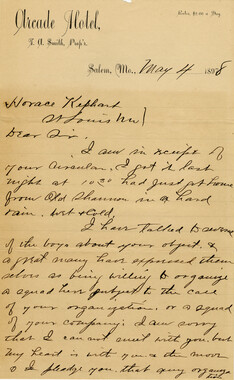 Arcade Hotel,
Rates, $2.00 a Day.
T. A. Smith, Prop'r.
Salem, Mo., May 4 1898
Horace Kephart
St Louis Mo
Dear Sir.
I am in receipt of
your Circular. I got it last
night at 10 30 had just got home
from Old Shannon in a hard
rain. Wet & Cold,
I have talked to some
of the boys about your object, &
a great many have expressed them
selves as being willing to organize
a squad here subject to the call
of your organization, or a squad
of your company. I am sorry
that I can not meet with you, but
my heart is with you & the move
& I pledge you, that any organiza